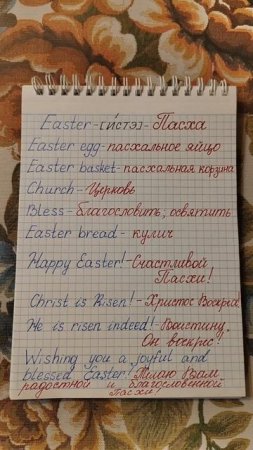 Easter-[ИСТЭ]-Пасха
Easter egg-пасхальное яйцо
Easter basket-пасхальная корзина
Church-Церковь
Bless-благословить, освятить
Easter bread-кулич
Happy Easter!-Счастливой
Пасхи!
Christ is Risen!-Христос Воскрес!
He is risen indeed!-Воистину,
Он воскрес!
Wishing you a joyful and
blessed Easter! Желаю Вам
радостной и благословенной
Пасхи!